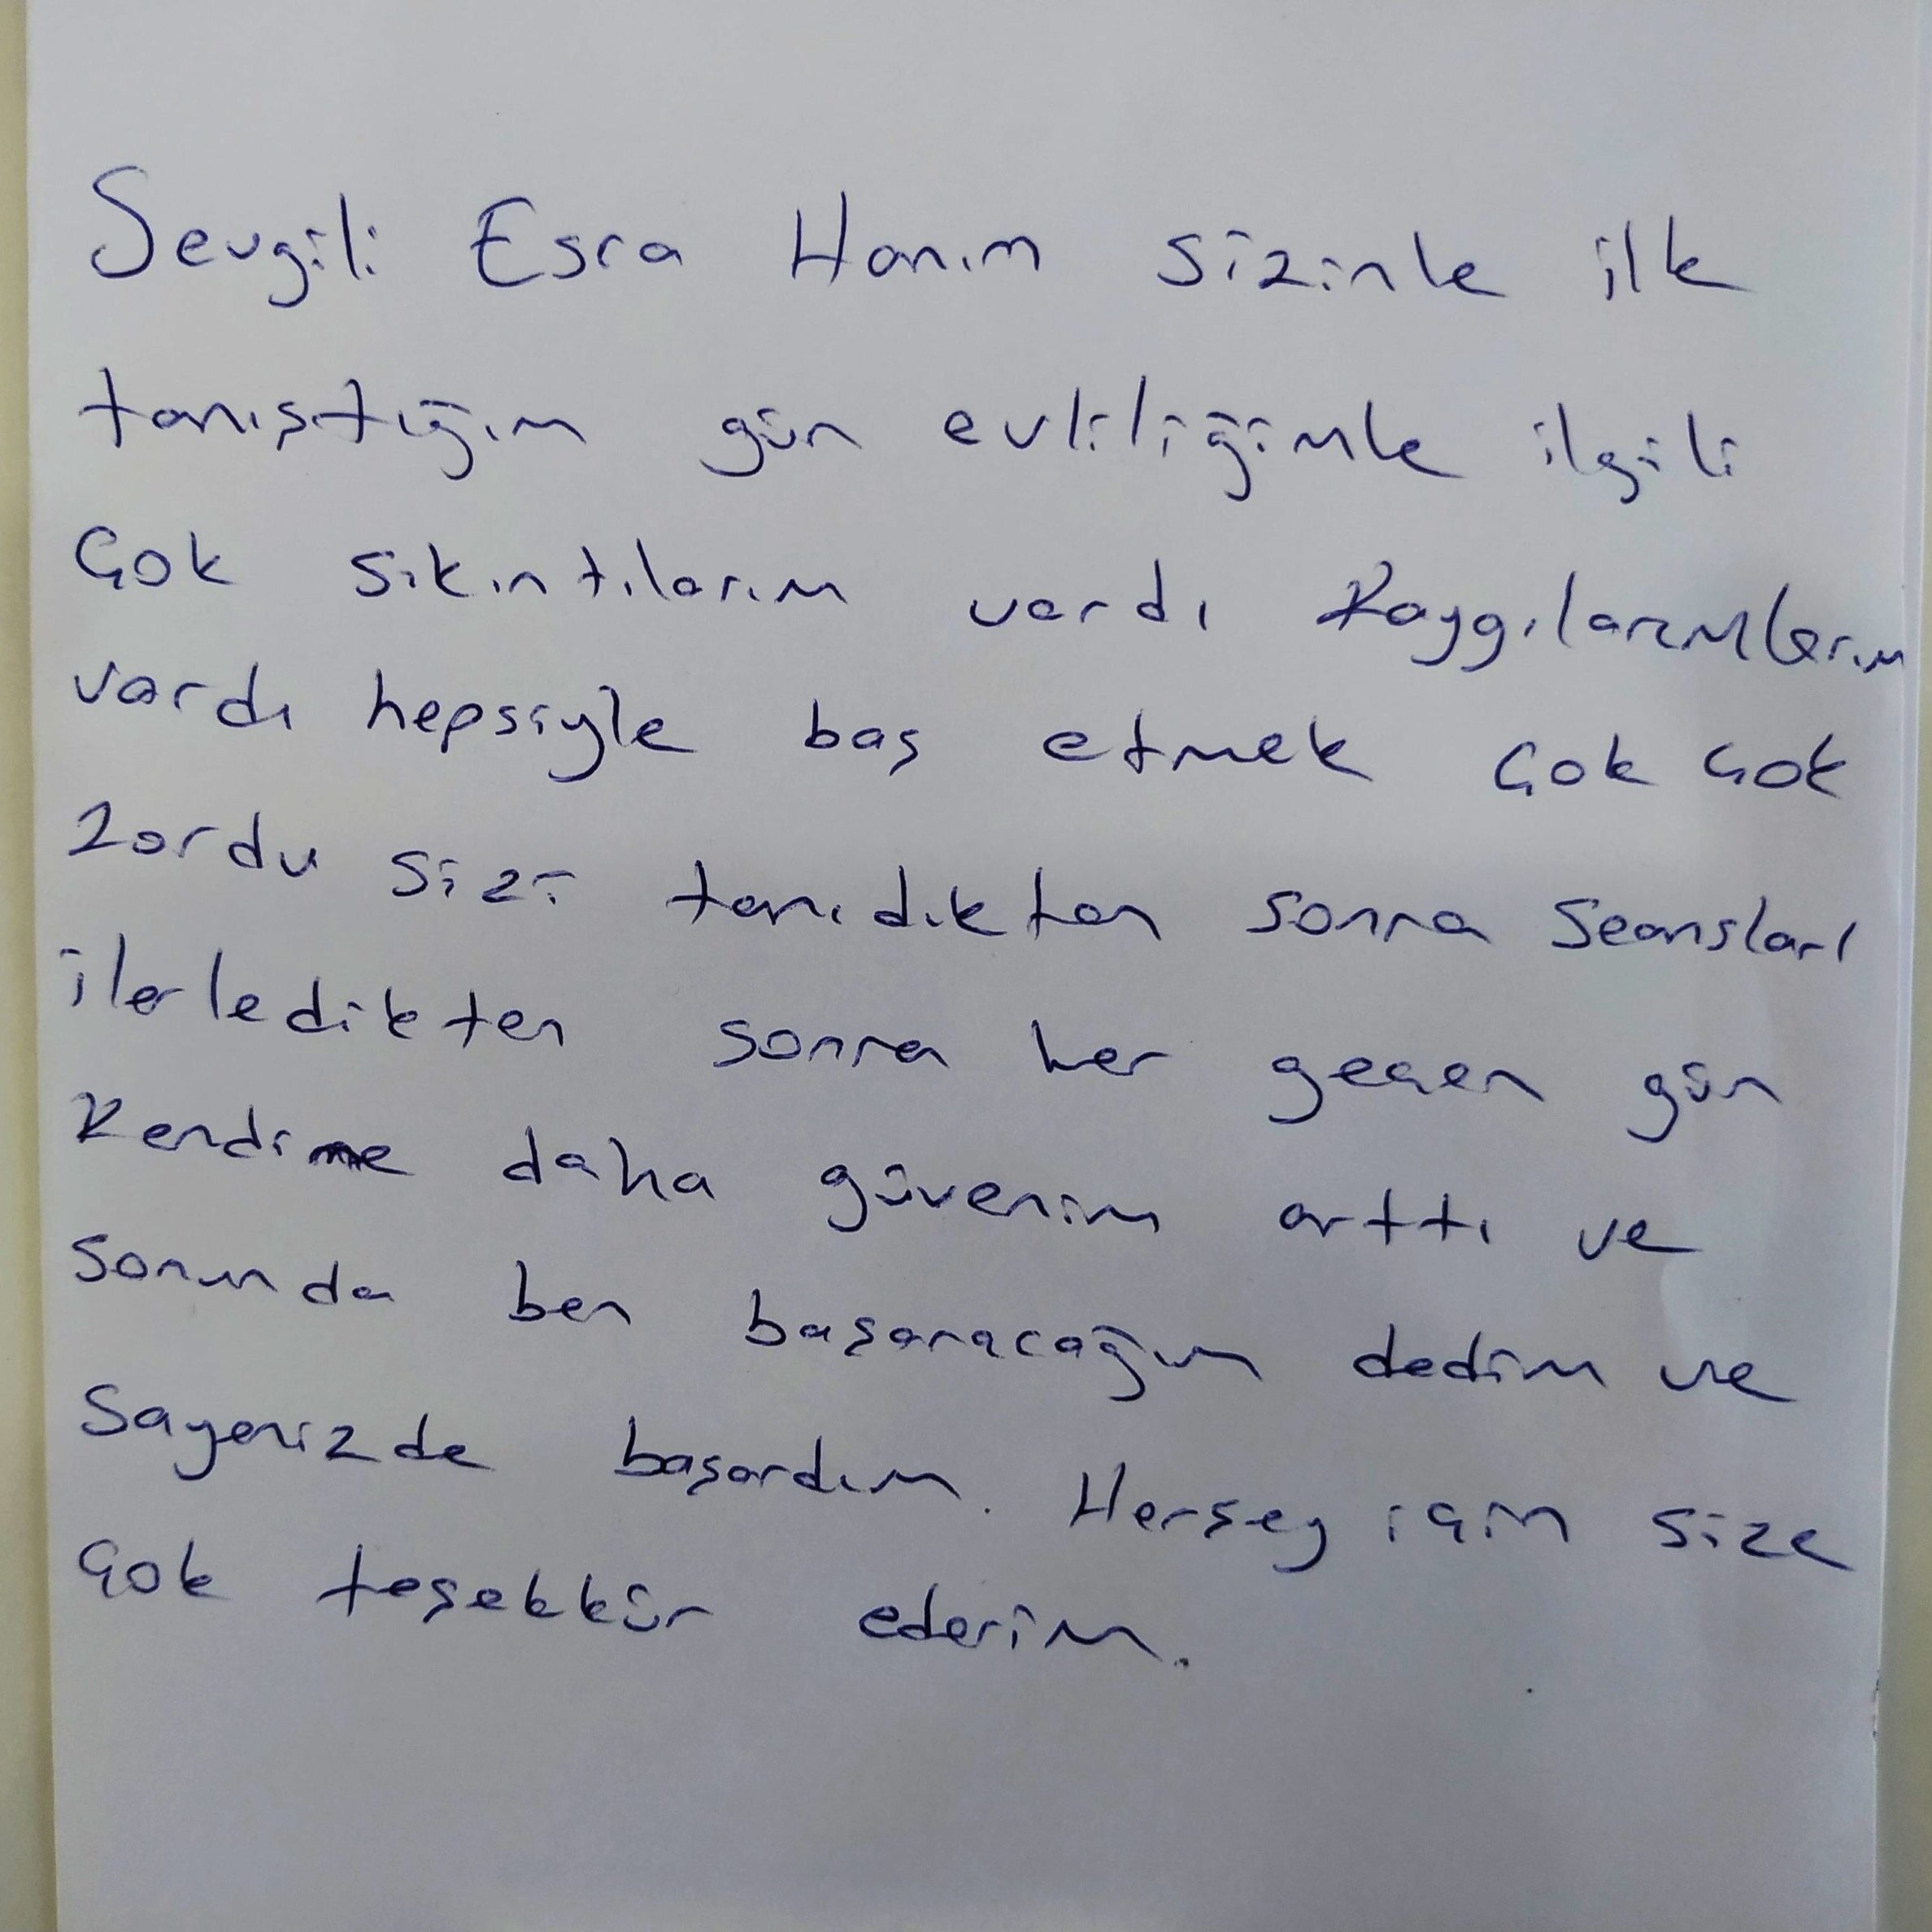 Sevgili Esra Hanım sizinle ilk
tanıştığım gün evliliğimle ilgili
Çok sıkıntılarım vardı Kaygılarımlarım
vardı hepsiyle baş etmek çok çok
Zordu sizi tanıdıktan sonra Seanslarl
ilerledikten sonra her geçen gün
Kendime daha güvenim arttı ve
Sonunda ben başaracağım dedim ve
Sayenizde başardım. Herşey için size
çok teşekkür ederim.